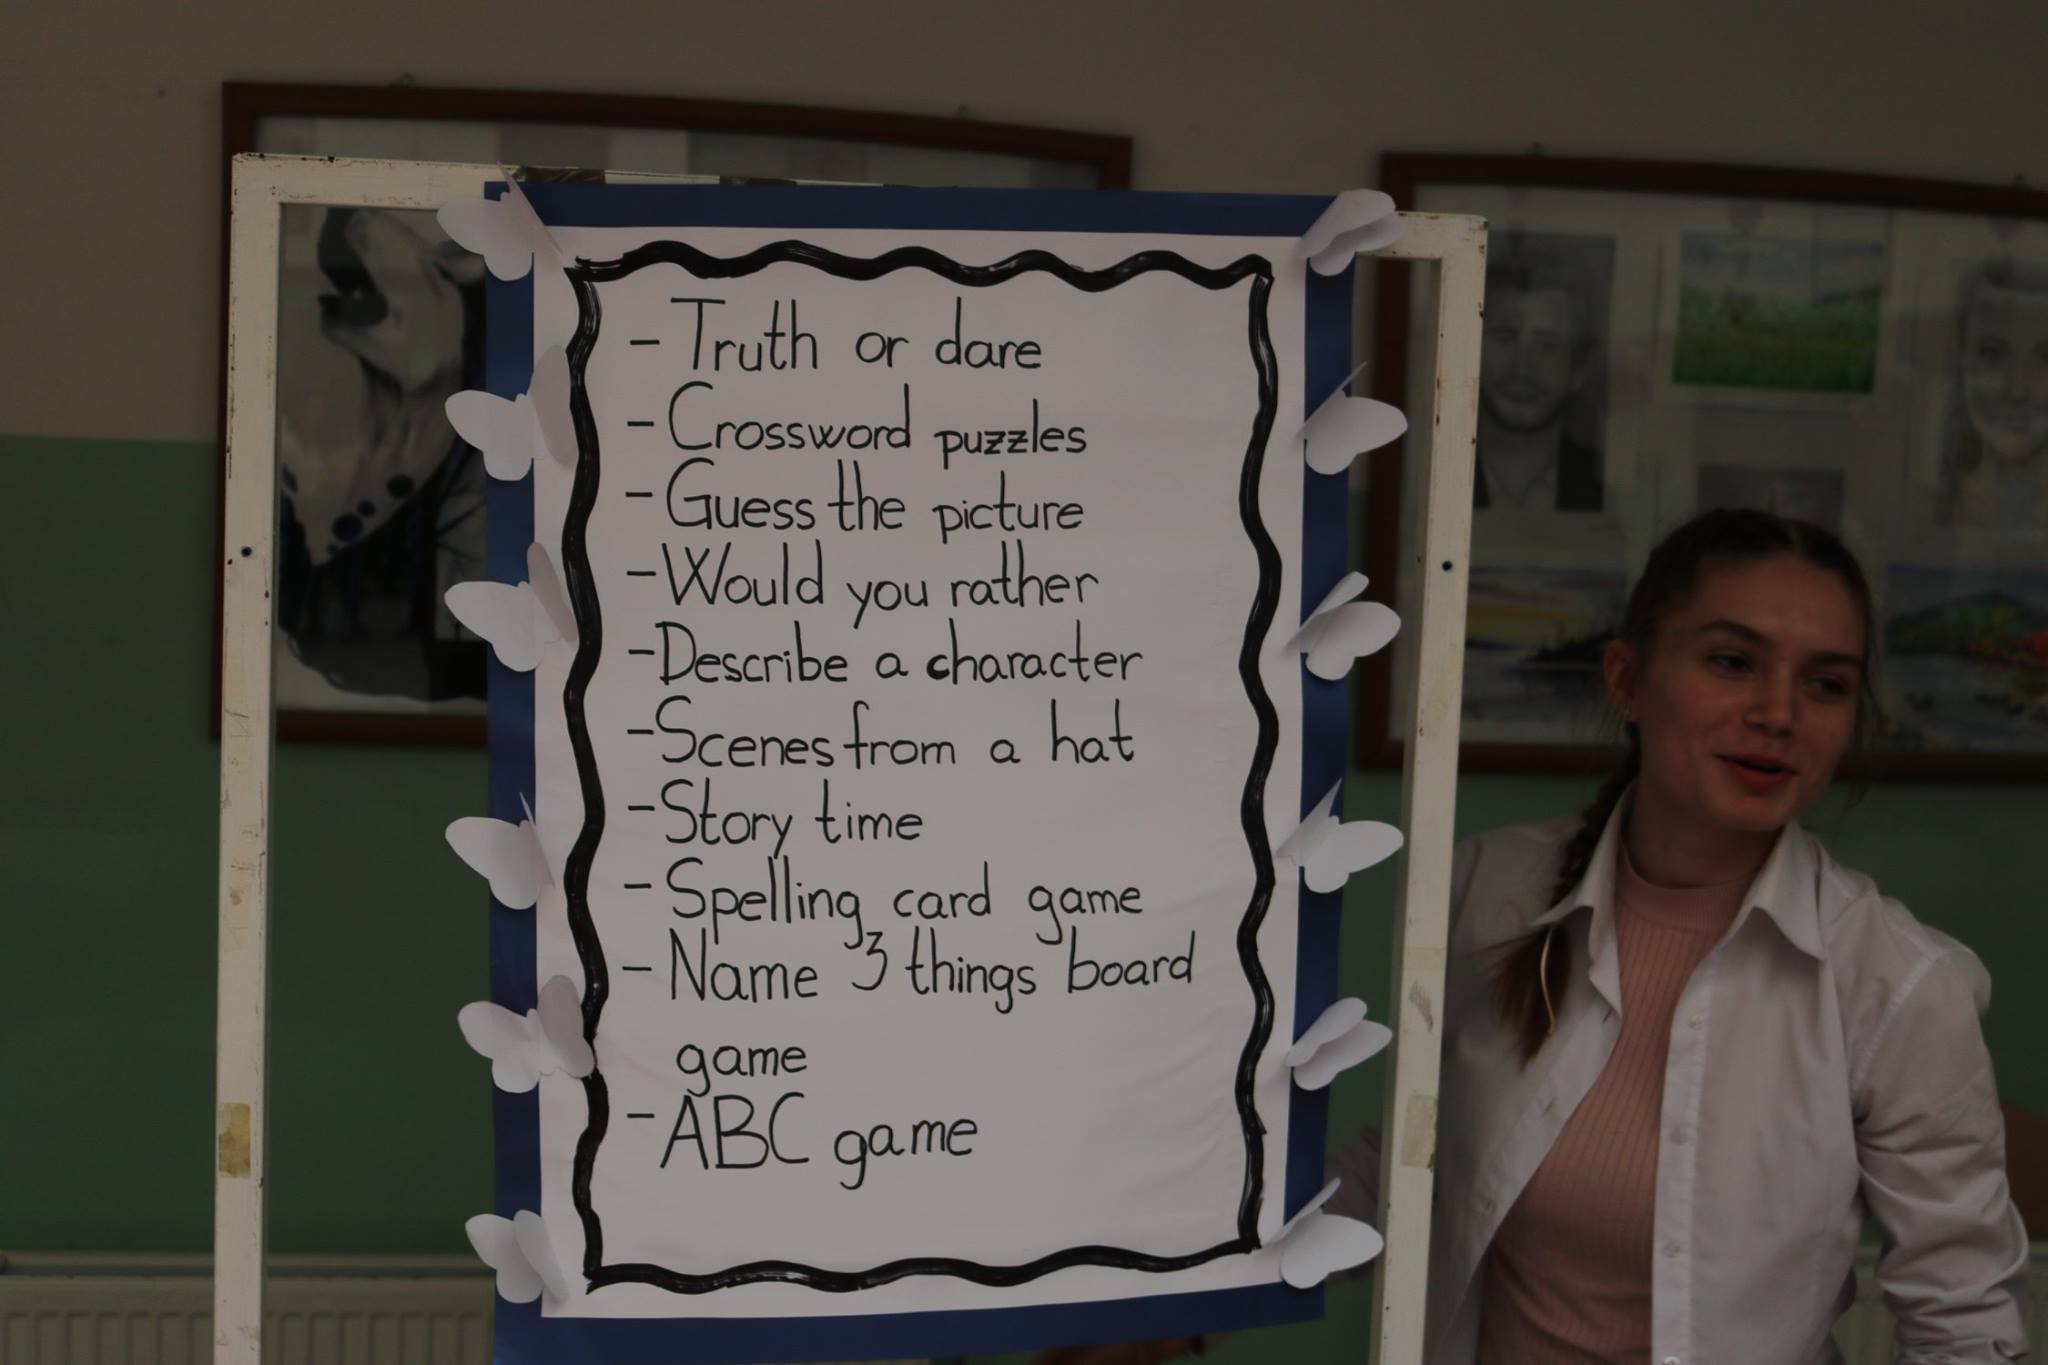 - Truth or dare
- Crossword puzzles
- Guess the picture
- Would you rather
- Describe a character
- Scenes from a hat
- Story time
- Spelling card game
- Name 3 things board
game
- ABC game